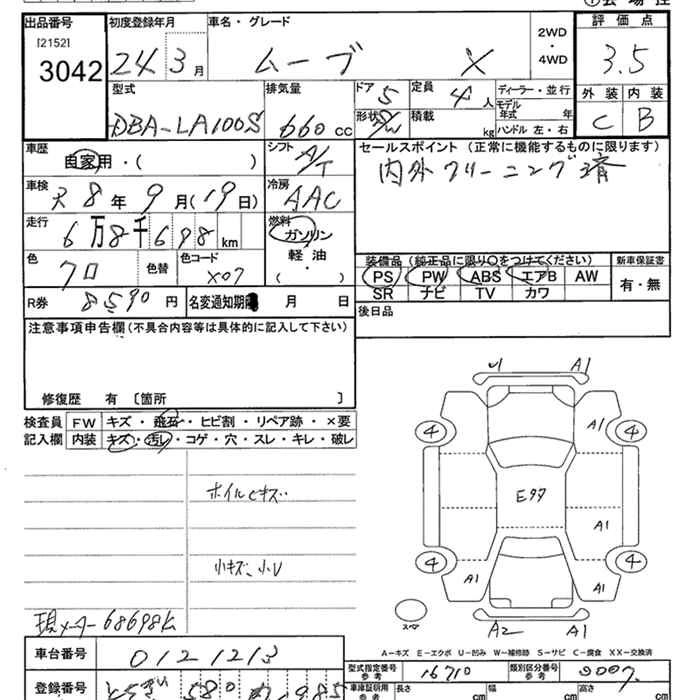 出品番号 初度登録年月 車名・グレード 2WD・4WD 評価点
[2152]
3042 24 3月 ムーブ X 3.5
型式 排気量 ドア 5 定員 4人 ディーラー・並行 外装 内装
DBA-LA100S 660cc 形状 積載 kg モデル年式 年 C B
ハンドル 左・右
車歴 自家用・( ) シフト A/T セールスポイント (正常に機能するものに限ります)
内外クリーニング済
車検 8年9月(19日) 冷房 AAC
走行 6万8千698km 燃料 ガソリン
軽油
・
( )
色 クロ 色替 色コード X07
装備品 (純正品に限り○をつけてください) 新車保証書
PS PW ABS エアB AW 有・無
SR ナビ TV カワ
R券 8590円 名変通知期限 月 日 後日品
注意事項申告欄(不具合内容等は具体的に記入して下さい)
修復歴 有 〔箇所 〕
検査員 FW キズ・飛石・ヒビ割・リペア跡・×要
記入欄 内装 キズ・汚レ・コゲ・穴・スレ・キレ・破レ
A1
4 A1 4
ホイルキズ
E97
A1
小キズ、小U
4 A1 A1 4
スペア
A2 A1
現メーター68698k
A-キズ E-エクボ U-凹み W-補修跡 S-サビ C-腐食 XX-交換済
車台番号 0121213 型式指定番号 参考 16710 類別区分番号 参考 0007
登録番号 580 985 車庫証明用 参考 長さ cm 幅 cm 高さ cm